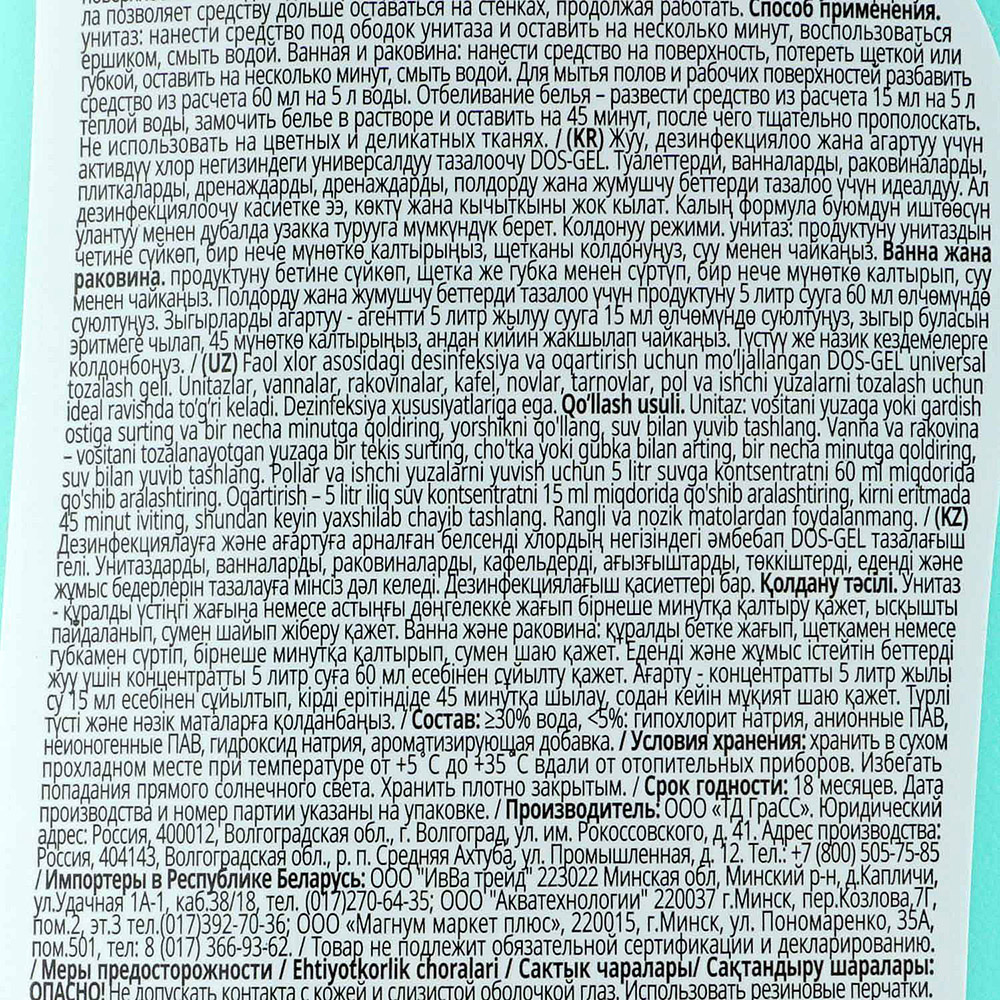 ла позволяет средству дольше оставаться на стенках, продолжая работать. Способ применения.
унитаз: нанести средство под ободок унитаза и оставить на несколько минут, воспользоваться
ершиком, смыть водой. Ванная и раковина: нанести средство на поверхность, потереть щеткой или
губкой, оставить на несколько минут, смыть водой. Для мытья полов и рабочих поверхностей разбавить
средство из расчета 60 мл на 5 л воды. Отбеливание белья – развести средство из расчета 15 мл на 5 л
теплой воды, замочить белье в растворе и оставить на 45 минут, после чего тщательно прополоскать.
Не использовать на цветных и деликатных тканях. / (KR) Жуу, дезинфекциялоо жана агартуу үчүн
активдүү хлор негизиндеги универсалдуу тазалоочу DOS-GEL. Туалеттерди, ванналарды, раковиналарды,
плиткаларды, дренаждарды, дренаждарды, полдорду жана жумушчу беттерди тазалоо үчүн идеалдуу. Ал
дезинфекциялоочу касиетке ээ, көктү жана кычыткыны жок кылат. Калың формула буюмдун иштөөсүн
улантуу менен дубалда узакка турууга мүмкүндүк берет. Колдонуу режими. унитаз: продуктуну унитаздын
четине сүйкөп, бир нече мүнөткө калтырыңыз, щетканы колдонуңуз, суу менен чайкаңыз. Ванна жана
раковина. продуктуну бетине сүйкөп, щетка же губка менен сүртүп, бир нече мүнөткө калтырып, суу
менен чайкаңыз. Полдорду жана жумушчу беттерди тазалоо үчүн продуктуну 5 литр сууга 60 мл өлчөмүндө
суюлтуңуз. Зыгырларды агартуу - агентти 5 литр жылуу сууга 15 мл өлчөмүндө суюлтуңуз, зыгыр буласын
эритмеге чылап, 45 мүнөткө калтырыңыз, андан кийин жакшылап чайкаңыз. Түстүү же назик кездемелерге
колдонбоңуз. / (UZ) Faol xlor asosidagi desinfeksiya va oqartirish uchun mo'ljallangan DOS-GEL universal
tozalash geli. Unitazlar, vannalar, rakovinalar, kafel, novlar, tarnovlar, pol va ishchi yuzalarni tozalash uchun
ideal ravishda to'g'ri keladi. Dezinfeksiya xususiyatlariga ega. Qo'llash usuli. Unitaz: vositani yuzaga yoki gardish
ostiga surting va bir necha minutga qoldiring, yorshikni qo'llang, suv bilan yuvib tashlang. Vanna va rakovina
– vositani tozalanayotgan yuzaga bir tekis surting, cho'tka yoki gubka bilan arting, bir necha minutga qoldiring,
suv bilan yuvib tashlang. Pollar va ishchi yuzalarni yuvish uchun 5 litr suvga kontsentratni 60 ml miqdorida
qo'shib aralashtiring. Oqartirish – 5 litr iliq suv kontsentratni 15 ml miqdorida qo'shib aralashtiring, kirni eritmada
45 minut iviting, shundan keyin yaxshilab chayib tashlang. Rangli va nozik matolardan foydalanmang. / (KZ)
Дезинфекциялауға және ағартуға арналған белсенді хлордың негізіндегі әмбебап DOS-GEL тазалағыш
гелі. Унитаздарды, ванналарды, раковиналарды, кафельдерді, ағызғыштарды, төккіштерді, еденді және
жұмыс бедерлерін тазалауға мінсіз дәл келеді. Дезинфекциялағыш қасиеттері бар. Қолдану тәсілі. Унитаз
- құралды үстіңгі жағына немесе астыңғы дөңгелекке жағып бірнеше минутқа қалтыру қажет, ысқышты
пайдаланып, сумен шайып жіберу қажет. Ванна және раковина: құралды бетке жағып, щеткамен немесе
губкамен сүртіп, бірнеше минутқа қалтырып, сумен шаю қажет. Еденді және жұмыс істейтін беттерді
жуу үшін концентратты 5 литр суға 60 мл есебінен сұйылту қажет. Ағарту - концентратты 5 литр жылы
су 15 мл есебінен сұйылтып, кірді ерітіндіде 45 минутқа шылау, содан кейін мұқият шаю қажет. Түрлі
түсті және нәзік маталарға қолданбаңыз. / Состав: ≥30% вода, <5%: гипохлорит натрия, анионные ПАВ,
неионогенные ПАВ, гидроксид натрия, ароматизирующая добавка. / Условия хранения: хранить в сухом
прохладном месте при температуре от +5˚С до +35˚С вдали от отопительных приборов. Избегать
попадания прямого солнечного света. Хранить плотно закрытым. / Срок годности: 18 месяцев. Дата
производства и номер партии указаны на упаковке. / Производитель: ООО «ТД ГраСС». Юридический
адрес: Россия, 400012, Волгоградская обл., г. Волгоград, ул. им. Рокоссовского, д. 41. Адрес производства:
Россия, 404143, Волгоградская обл., р. п. Средняя Ахтуба, ул. Промышленная, д. 12. Тел.: +7 (800) 505-75-85
/ Импортеры в Республике Беларусь: ООО "ИвВа трейд" 223022 Минская обл, Минский р-н, д.Капличи,
ул.Удачная 1А-1, каб.38/18, тел. (017)270-64-35; ООО "Акватехнологии" 220037 г.Минск, пер.Козлова,7Г,
пом.2, эт.3 тел.(017)392-70-36; ООО «Магнум маркет плюс», 220015, г.Минск, ул. Пономаренко, 35А,
пом.501, тел: 8 (017) 366-93-62. / Товар не подлежит обязательной сертификации и декларированию.
/ Меры предосторожности / Ehtiyotkorlik choralari / Сактык чаралары/ Сақтандыру шаралары:
ОПАСНО! Не допускать контакта с кожей и слизистой оболочкой глаз. Использовать резиновые перчатки.